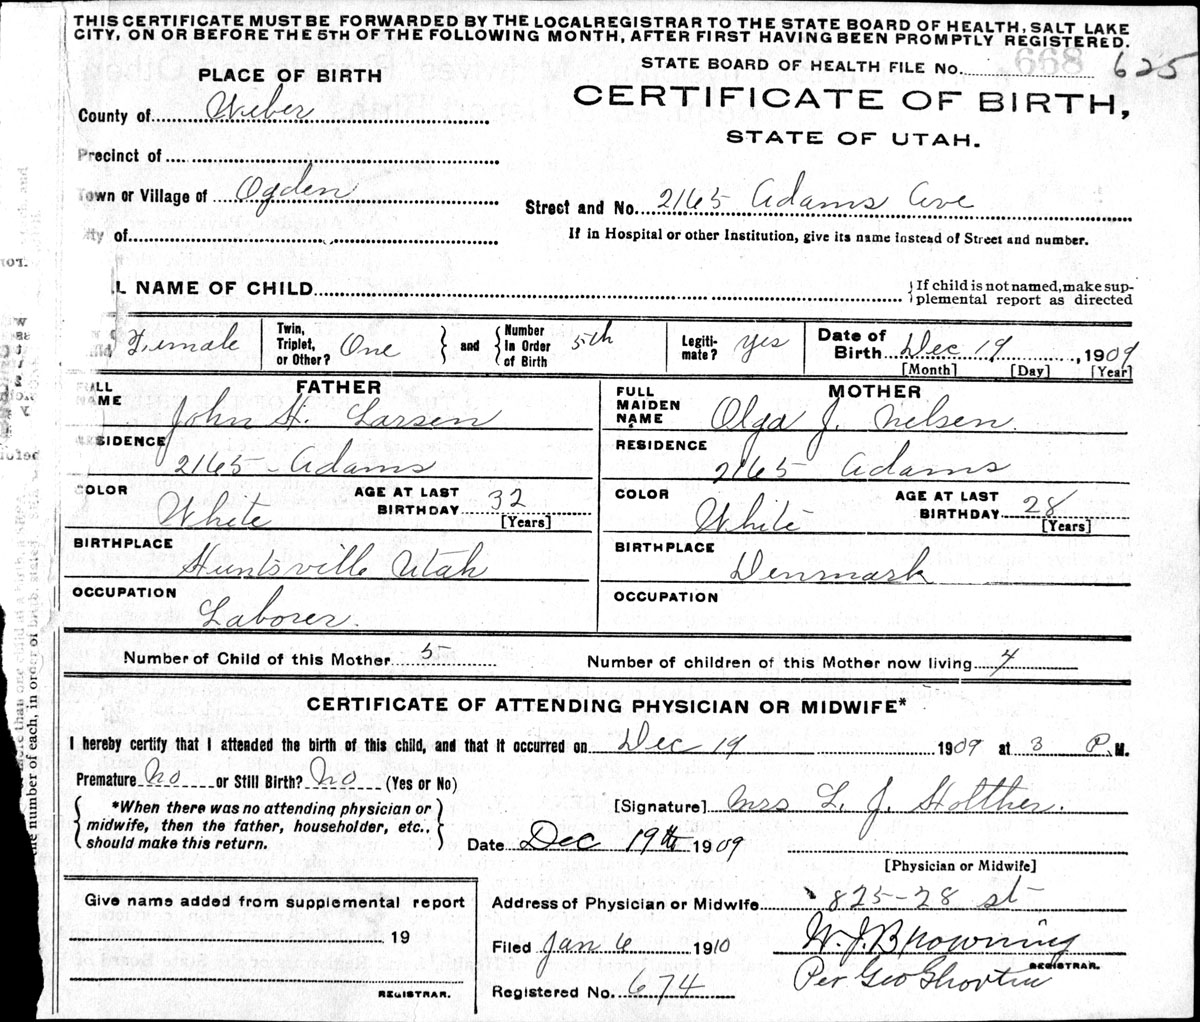 THIS CERTIFICATE MUST BE FORWARDED BY THE LOCAL REGISTRAR TO THE STATE BOARD OF HEALTH, SALT LAKE
CITY, ON OR BEFORE THE 5TH OF THE FOLLOWING MONTH, AFTER FIRST HAVING BEEN PROMPTLY REGISTERED.
STATE BOARD OF HEALTH FILE No. 625
PLACE OF BIRTH
CERTIFICATE OF BIRTH,
STATE OF UTAH.
County of Weber
Precinct of
Town or Village of Ogden
Street and No. 2165 Adams Ave
City of
If in Hospital or other Institution, give its name instead of Street and number.
L NAME OF CHILD
If child is not named, make sup-
plemental report as directed
Female
Twin, Triplet, or Other? One and Number In Order of Birth 5th
Legiti-mate? Yes
Date of Birth Dec 19, 1909
[Month] [Day] [Year]
FATHER
FULL NAME John H. Larsen
RESIDENCE 2165 Adams
COLOR White
AGE AT LAST BIRTHDAY 32
[Years]
BIRTHPLACE Huntsville Utah
OCCUPATION Laborer.
MOTHER
FULL MAIDEN NAME Olga J. Nelsen.
RESIDENCE 2165 Adams
COLOR White
AGE AT LAST BIRTHDAY 28
[Years]
BIRTHPLACE Denmark
OCCUPATION
Number of Child of this Mother 5
Number of children of this Mother now living 4
CERTIFICATE OF ATTENDING PHYSICIAN OR MIDWIFE*
I hereby certify that I attended the birth of this child, and that it occurred on Dec 19 1909 at 3 P. M.
Premature No or Still Birth? No (Yes or No)
*When there was no attending physician or
midwife, then the father, householder, etc.,
should make this return.
[Signature] Mrs L. J. Holther.
Date Dec 19th 1909
[Physician or Midwife]
Give name added from supplemental report
19
REGISTRAR.
Address of Physician or Midwife 825-28 st
Filed Jan 6 1910
W. J. Browning
REGISTRAR.
Registered No. 674
Per Geo
the number of each, in order of birth, stated.